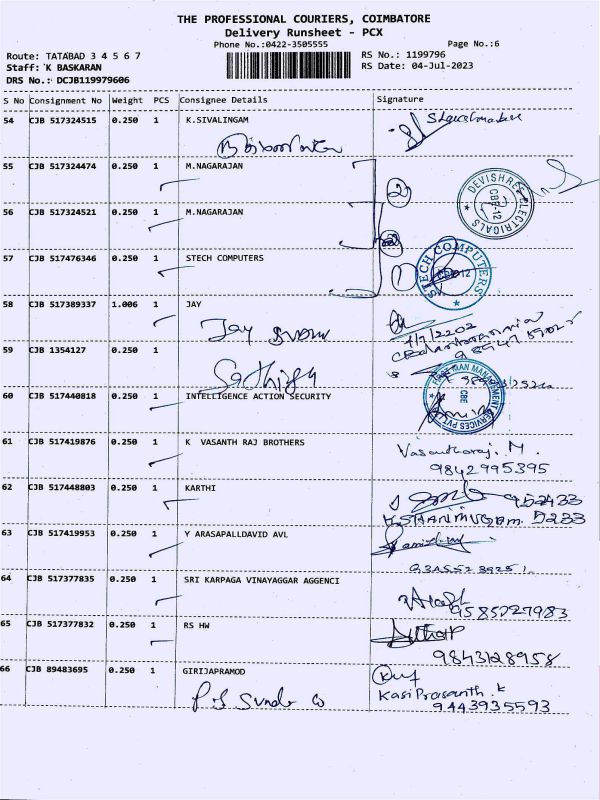 THE PROFESSIONAL COURIERS, COIMBATORE
Delivery Runsheet - PCX
Phone No.:0422-3505555
Page No.:6
Route: TATABAD 3 4 5 6 7
Staff: K BASKARAN
DRS No.: DCJB119979606
RS No.: 1199796
RS Date: 04-Jul-2023
S No Consignment No Weight PCS Consignee Details Signature
54 CJB 517324515 0.250 1 K.SIVALINGAM
55 CJB 517324474 0.250 1 M.NAGARAJAN
2
DEVISHREE ELECTRICALS
CBE-12
56 CJB 517324521 0.250 1 M.NAGARAJAN
57 CJB 517476346 0.250 1 STECH COMPUTERS
1
STECH COMPUTERS
58 CJB 517389337 1.006 1 JAY
Jay
59 CJB 1354127 0.250 1
Sathish
60 CJB 517440818 0.250 1 INTELLIGENCE ACTION SECURITY
MAN MANAGEMENT SERVICES PVT
CBE
61 CJB 517419876 0.250 1 K VASANTH RAJ BROTHERS
Vasantharaj. M.
9842995395
62 CJB 517448803 0.250 1 KARTHI
952433
K.SHANMUGAM. 5233
63 CJB 517419953 0.250 1 Y ARASAPALLDAVID AVL
64 CJB 517377835 0.250 1 SRI KARPAGA VINAYAGGAR AGGENCI
9585727983
65 CJB 517377832 0.250 1 RS HW
9843128958
66 CJB 89483695 0.250 1 GIRIJAPRAMOD
Kasi Prasanth. K
9443935593